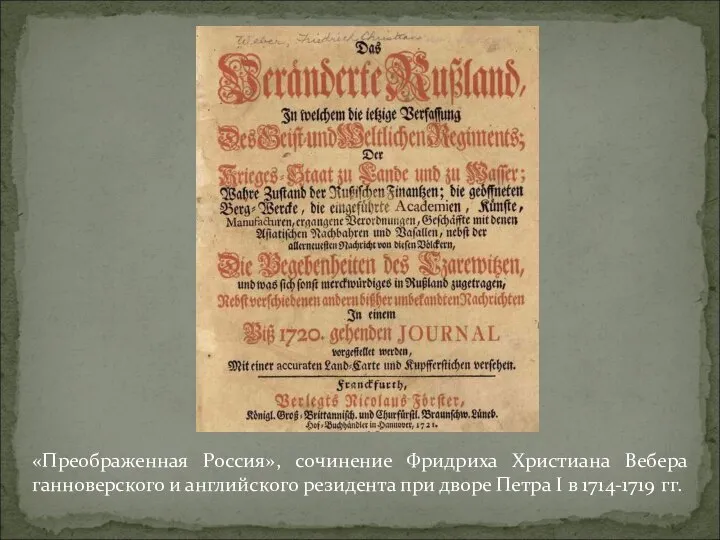 Weber, Friedrich Christian
Das
Veränderte Rußland,
In welchem die ietzige Verfassung
Des Geist- und Weltlichen Regiments;
Der
Krieges-Staat zu Lande und zu Wasser;
Wahre Zustand der Rußischen Finantzen; die geöffneten
Berg-Wercke, die eingeführte Academien, Künste,
Manufacturen, ergangene Verordnungen, Geschäffte mit denen
Asiatischen Nachbahren und Vasallen, nebst der
allerneuesten Nachricht von diesen Völckern,
Die Begebenheiten des Czarewitzen,
und was sich sonst merckwürdiges in Rußland zugetragen,
Nebst verschiedenen andern bißher unbekandten Nachrichten
In einem
Biß 1720. gehenden JOURNAL
vorgestellet werden,
Mit einer accuraten Land-Carte und Kupfferstichen versehen.
Franckfurth,
Verlegts Nicolaus Förster,
Königl. Groß-Brittannisch. und Churfürstl. Braunschw. Lüneb.
Hof-Buchhändler in Hannover, 1721.
«Преображенная Россия», сочинение Фридриха Христиана Вебера
ганноверского и английского резидента при дворе Петра I в 1714-1719 гг.